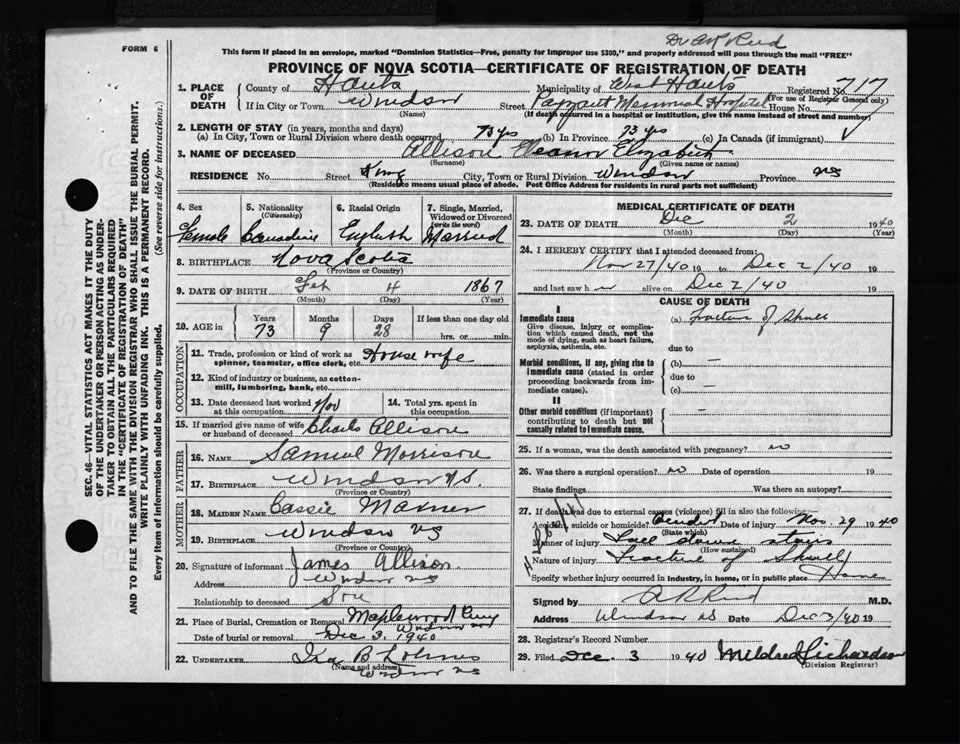 FORM 6
Dr A R Reid
This form if placed in an envelope, marked "Dominion Statistics—Free, penalty for improper use $300," and properly addressed will pass through the mail "FREE"
PROVINCE OF NOVA SCOTIA—CERTIFICATE OF REGISTRATION OF DEATH
1. PLACE OF DEATH
County of Hants Municipality of West Hants Registered No. 717
(For use of Registrar General only)
If in City or Town Windsor Street Payzant Memorial Hospital House No.
(Name) (If death occurred in a hospital or institution, give the name instead of street and number)
2. LENGTH OF STAY (in years, months and days)
(a) In City, Town or Rural Division where death occurred 73 yrs (b) In Province 73 yrs (c) In Canada (if immigrant)
3. NAME OF DECEASED Allison Eleanor Elizabeth
(Surname) (Given name or names)
RESIDENCE No. Street King City, Town or Rural Division Windsor Province NS
(Residence means usual place of abode. Post Office Address for residents in rural parts not sufficient)
SEC. 46—VITAL STATISTICS ACT MAKES IT THE DUTY
OF THE UNDERTAKER OR PERSON ACTING AS UNDER-
TAKER TO OBTAIN ALL THE PARTICULARS REQUIRED
IN THE "CERTIFICATE OF REGISTRATION OF DEATH"
AND TO FILE THE SAME WITH THE DIVISION REGISTRAR WHO SHALL ISSUE THE BURIAL PERMIT.
WRITE PLAINLY WITH UNFADING INK. THIS IS A PERMANENT RECORD.
Every item of information should be carefully supplied. (See reverse side for instructions.)
4. Sex 5. Nationality (Citizenship) 6. Racial Origin 7. Single, Married, Widowed or Divorced (write the word)
Female Canadian English Married
8. BIRTHPLACE Nova Scotia
(Province or Country)
9. DATE OF BIRTH Feb 4 1867
(Month) (Day) (Year)
10. AGE in Years Months Days If less than one day old
73 9 28 hrs. or min.
OCCUPATION
11. Trade, profession or kind of work as spinner, teamster, office clerk, etc. House wife
12. Kind of industry or business, as cotton-mill, lumbering, bank, etc.
13. Date deceased last worked at this occupation Nov 14. Total yrs. spent in this occupation
15. If married give name of wife or husband of deceased Charles Allison
FATHER
16. NAME Samuel Morrison
17. BIRTHPLACE Windsor N.S.
(Province or Country)
MOTHER
18. MAIDEN NAME Cassie
19. BIRTHPLACE Windsor NS
(Province or Country)
20. Signature of informant James Allison.
Address Windsor NS
Relationship to deceased Son
21. Place of Burial, Cremation or Removal Maplewood Cemy
Windsor NS
Date of burial or removal Dec 3. 1940
22. UNDERTAKER Ira B
(Name and address)
Windsor NS
MEDICAL CERTIFICATE OF DEATH
23. DATE OF DEATH Dec 2 1940
(Month) (Day) (Year)
24. I HEREBY CERTIFY that I attended deceased from:
Nov 27/40 19 to Dec 2/40 19
and last saw her alive on Dec 2/40 19
CAUSE OF DEATH
I
Immediate cause (a) Fracture of Skull
Give disease, injury or complication which caused death, not the mode of dying, such as heart failure, asphyxia, asthenia, etc.
due to
Morbid conditions, if any, giving rise to immediate cause (stated in order proceeding backwards from immediate cause). (b) —
due to
(c) —
II
Other morbid conditions (if important) contributing to death but not causally related to immediate cause. —
25. If a woman, was the death associated with pregnancy? no
26. Was there a surgical operation? no Date of operation 19
State findings Was there an autopsy?
27. If death was due to external causes (violence) fill in also the following:
Accident, suicide or homicide? Accident Date of injury Nov. 29 1940
(State which)
Manner of injury Fall down stairs
(How sustained)
Nature of injury Fracture of Skull
Specify whether injury occurred in industry, in home, or in public place Home
Signed by A R Reid M.D.
Address Windsor NS Date Dec 3/40 19
28. Registrar's Record Number
29. Filed Dec. 3 1940 Mildred Richardson
(Division Registrar)